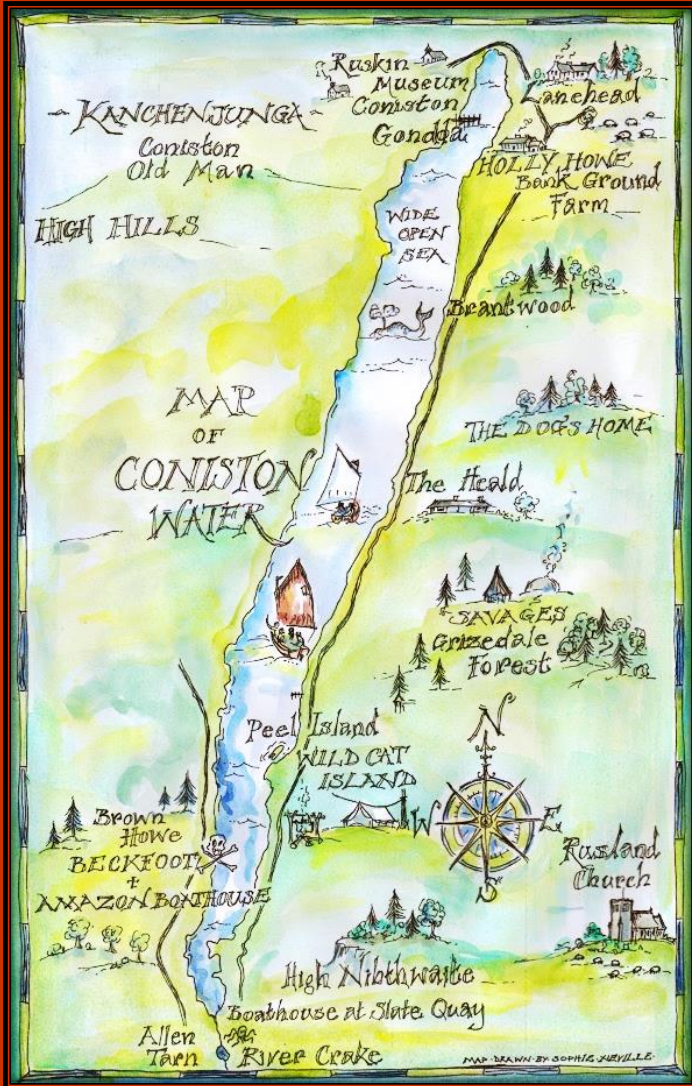 Ruskin
Museum
Coniston
Gondola
Lanehead
~ KANCHENJUNGA ~
Coniston
Old Man
HOLLY HOWE
Bank Ground
Farm
HIGH HILLS
WIDE
OPEN
SEA
Brantwood
MAP
OF
CONISTON
WATER
THE DOG'S HOME
The Heald
SAVAGES
Grizedale
Forest
Peel Island
WILD CAT
ISLAND
N
W
E
S
Brown
Howe
BECKFOOT
+
AMAZON BOATHOUSE
Rusland
Church
High Nibthwaite
Boathouse at Slate Quay
Allen
Tarn
River Crake
MAP·DRAWN·BY·SOPHIE·NEVILLE·